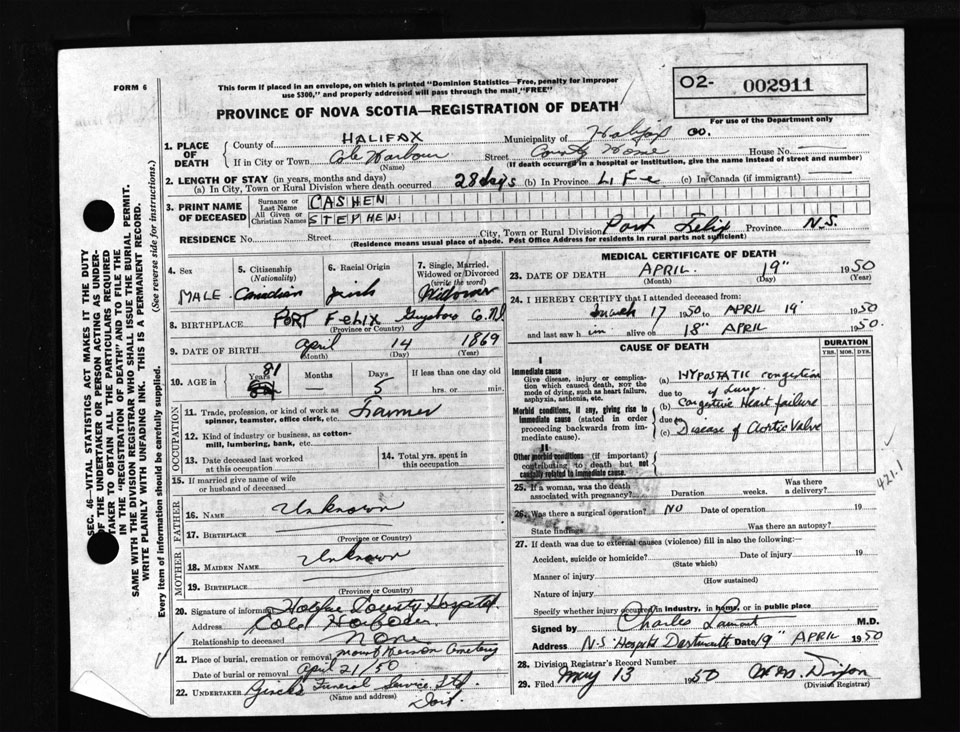 FORM 6
This form if placed in an envelope, on which is printed "Dominion Statistics—Free, penalty for improper
use $300," and properly addressed will pass through the mail "FREE"
O2- 002911
For use of the Department only
PROVINCE OF NOVA SCOTIA—REGISTRATION OF DEATH
1. PLACE OF DEATH
County of HALIFAX Municipality of Halifax Co.
If in City or Town Cole Harbour Street County Home House No. —
(Name) (If death occurred in a hospital or institution, give the name instead of street and number)
2. LENGTH OF STAY (in years, months and days)
(a) In City, Town or Rural Division where death occurred 28 days (b) In Province LIFe (c) In Canada (if immigrant) —
3. PRINT NAME OF DECEASED
Surname or Last Name CASHEN
All Given or Christian Names STEPHEN
RESIDENCE No. Street City, Town or Rural Division Port Felix Province N.S.
(Residence means usual place of abode. Post Office Address for residents in rural parts not sufficient)
4. Sex MALE
5. Citizenship (Nationality) Canadian
6. Racial Origin Irish
7. Single, Married, Widowed or Divorced (write the word) Widower
8. BIRTHPLACE PORT FeLIX Guysboro Co. N.S.
(Province or Country)
9. DATE OF BIRTH April 14 1869
(Month) (Day) (Year)
10. AGE in Years 81 Months — Days 5 If less than one day old hrs. or min.
OCCUPATION
11. Trade, profession, or kind of work as spinner, teamster, office clerk, etc. Farmer
12. Kind of industry or business, as cotton-mill, lumbering, bank, etc.
13. Date deceased last worked at this occupation
14. Total yrs. spent in this occupation
15. If married give name of wife or husband of deceased
FATHER
16. Name Unknown
17. Birthplace
(Province or Country)
MOTHER
18. Maiden Name Unknown
19. Birthplace
(Province or Country)
20. Signature of informant Halifax County Hospital
Address Cole Harbour
Relationship to deceased None
21. Place of burial, cremation or removal Mount Hermon Cemetery
Date of burial or removal April 21/50
22. Undertaker Funeral Service Ltd.
(Name and address) Dart.
MEDICAL CERTIFICATE OF DEATH
23. DATE OF DEATH APRIL 19" 1950
(Month) (Day) (Year)
24. I HEREBY CERTIFY that I attended deceased from:
March 17 1950 to APRIL 19' 1950
and last saw him alive on 18" APRIL 1950.
CAUSE OF DEATH
DURATION
YRS. MOS. DYS.
I
Immediate cause
Give disease, injury or complication which caused death, NOT the mode of dying, such as heart failure, asphyxia, asthenia, etc.
(a) HYPOSTATIC congestion of Lung.
due to
Morbid conditions, if any, giving rise to immediate cause (stated in order proceeding backwards from immediate cause).
(b) Congestive Heart failure
due to
(c) Disease of Aortic Valve
II
Other morbid conditions (if important) contributing to death but not causally related to immediate cause.
421.1
25. If a woman, was the death associated with pregnancy? Duration weeks. Was there a delivery?
26. Was there a surgical operation? NO Date of operation 19
State findings Was there an autopsy?
27. If death was due to external causes (violence) fill in also the following:—
Accident, suicide or homicide? Date of injury 19
(State which)
Manner of injury
(How sustained)
Nature of injury
Specify whether injury occurred in industry, in home, or in public place
Signed by Charles Lamont M.D.
Address N.S. Hospital Dartmouth Date 19" APRIL 1950
28. Division Registrar's Record Number
29. Filed May 13 1950 Dixon
(Division Registrar)
SEC. 46—VITAL STATISTICS ACT MAKES IT THE DUTY
OF THE UNDERTAKER OR PERSON ACTING AS UNDER-
TAKER TO OBTAIN ALL THE PARTICULARS REQUIRED
IN THE "REGISTRATION OF DEATH" AND TO FILE THE
SAME WITH THE DIVISION REGISTRAR WHO SHALL ISSUE THE BURIAL PERMIT.
WRITE PLAINLY WITH UNFADING INK. THIS IS A PERMANENT RECORD.
Every item of information should be carefully supplied. (See reverse side for instructions.)